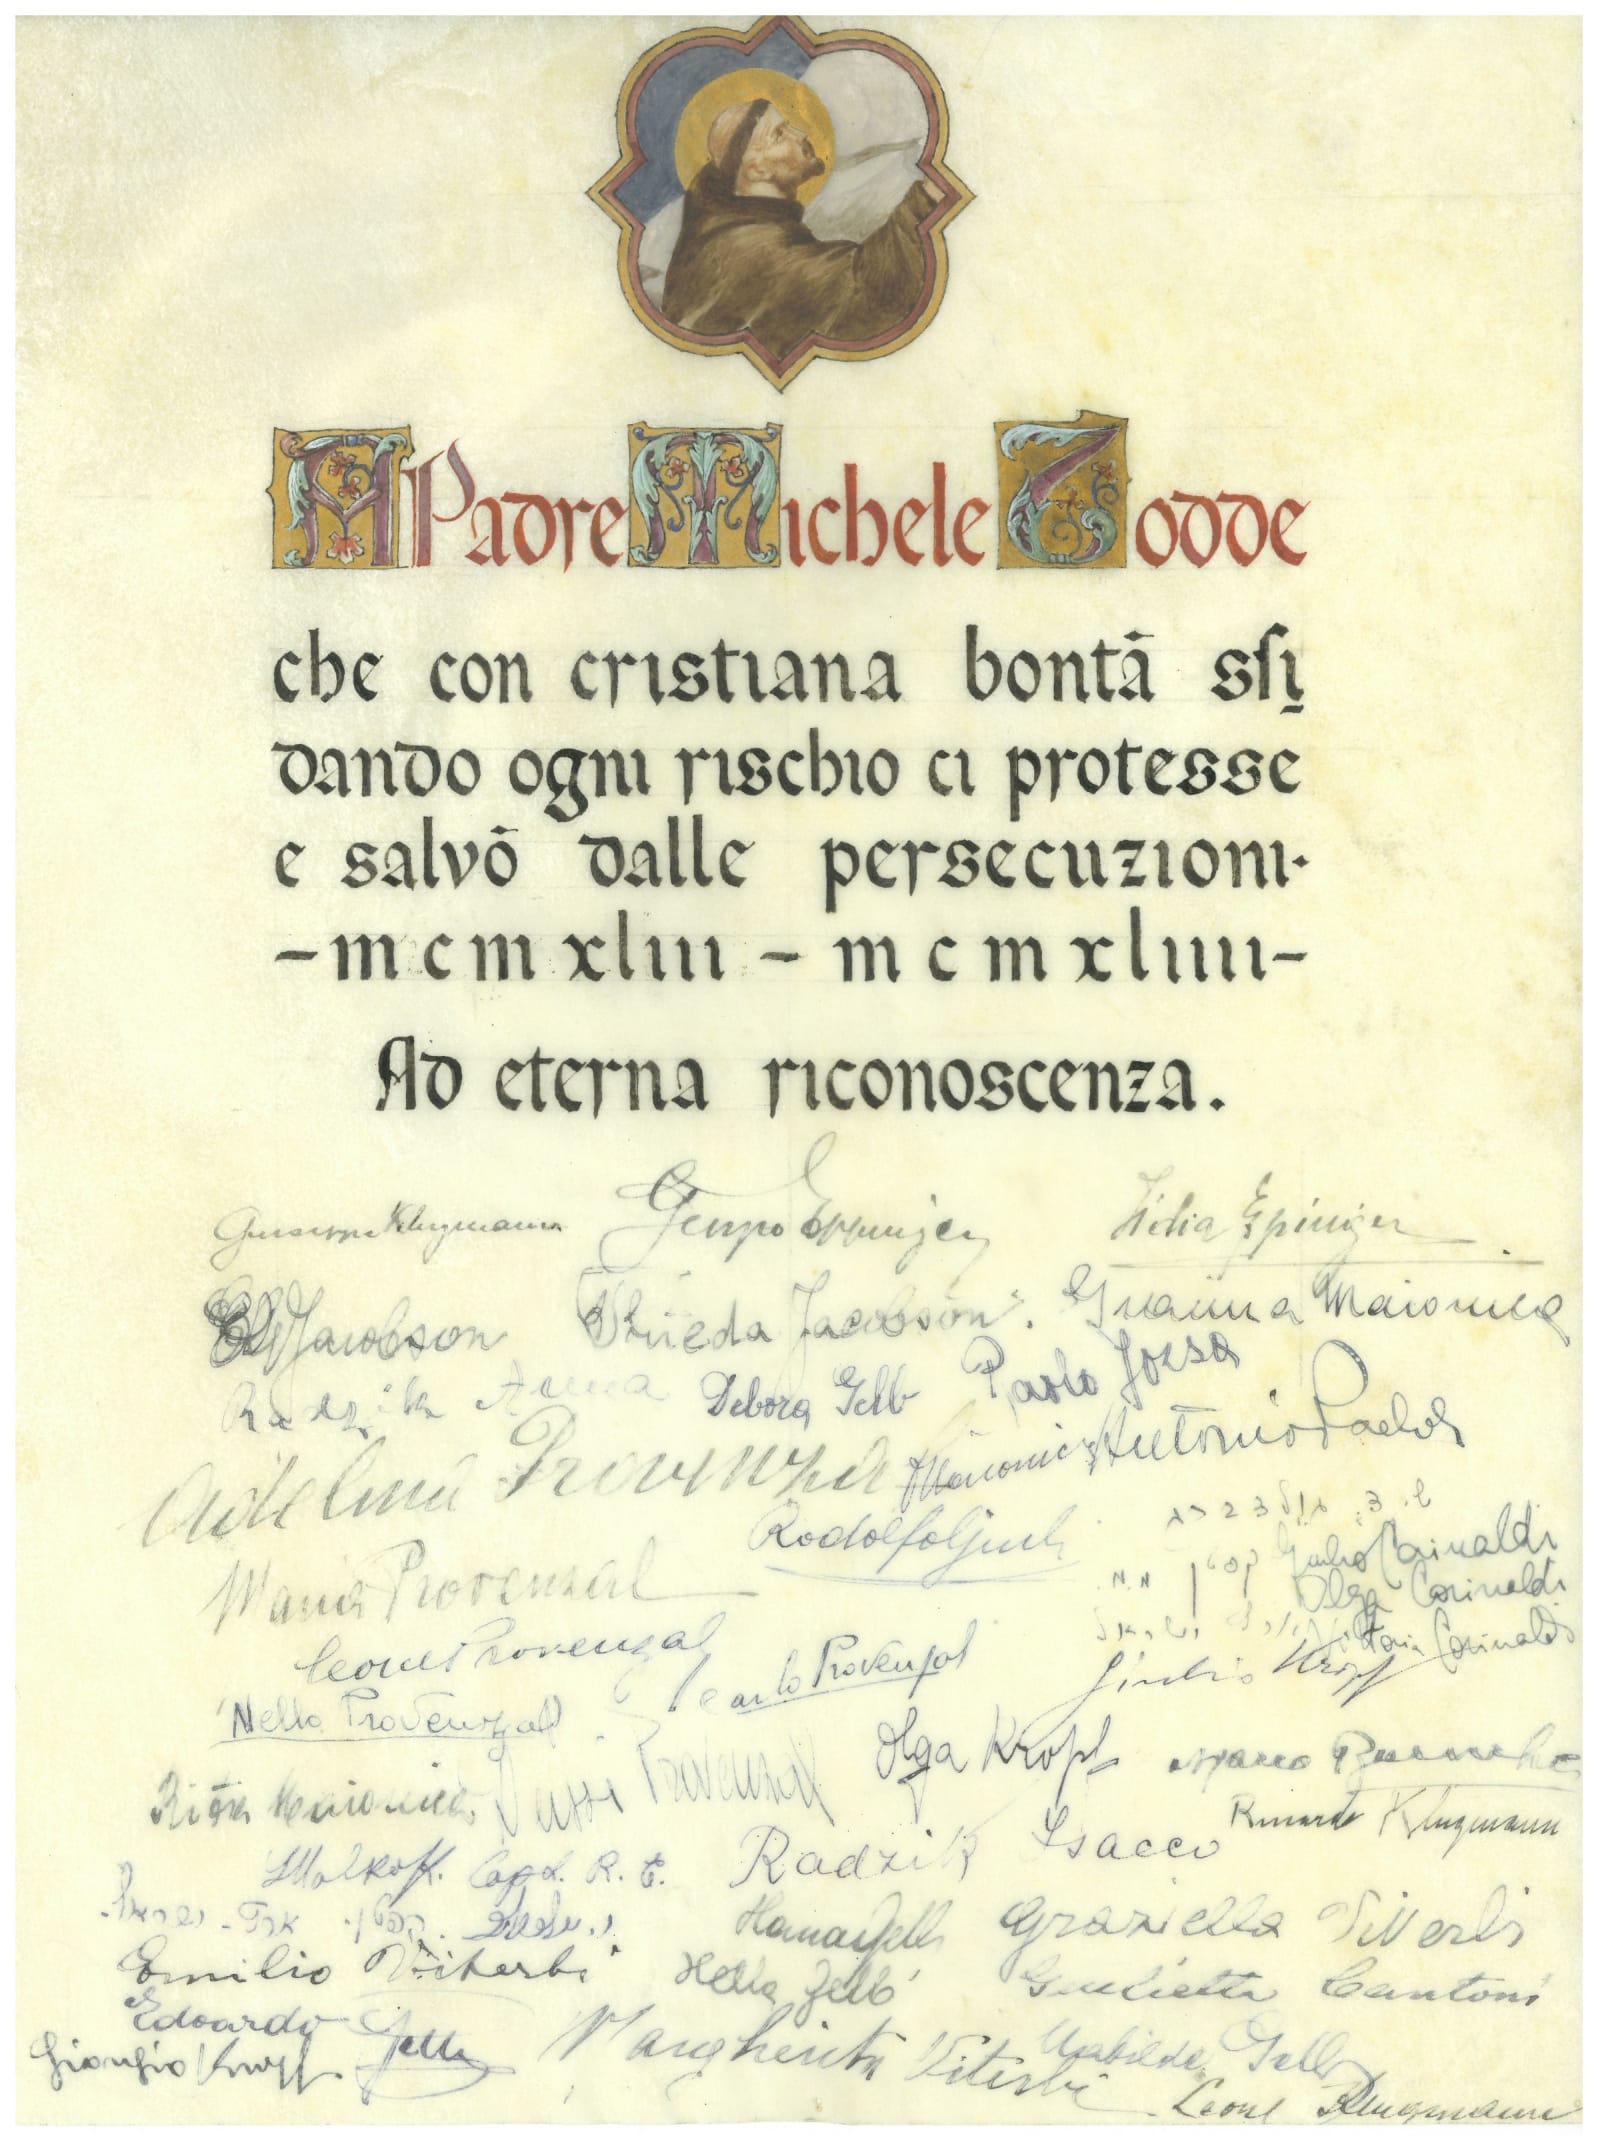 A Padre Michele Todde
che con cristiana bontà sfi
dando ogni rischio ci protesse
e salvò dalle persecuzioni.
- mcmxliii - mcmxliiii -
Ad eterna riconoscenza.
Giuseppe Klugmann Eppinger Lidia Epinger
Jacobson Frieda Jacobson. Gianna Maionica
Radzik Anna Debora Gelb Paolo Jozsa
Adelina Provenzal Maionica Antonio
Rodolfo
Giulio Corinaldi
Maria Provenzal Olga Corinaldi
Corinaldi
Leone Provenzal Carlo Provenzal Giulio Kropf
Nella Provenzal
Olga Kropf Marco
Rita Maionica Provenzal
Klugmann
Malkoff. Capt. R. E. Radzik Isacco
Gelb Graziella Viterbi
Emilio Viterbi Hella Gelb Giulietta Cantoni
Edoardo Gelb Matilde Gelb
Giorgio Kropf Margherita Viterbi
Leone Klugmann